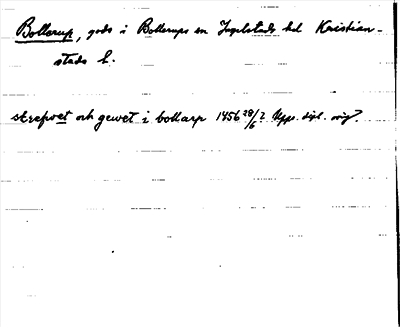 Bollerup, gods i Bollerups sn Ingelstads hd Kristian-
stads l.
strepvet och gewet i bollarp 1456 28/6 ? Upps. dipl. orig?.